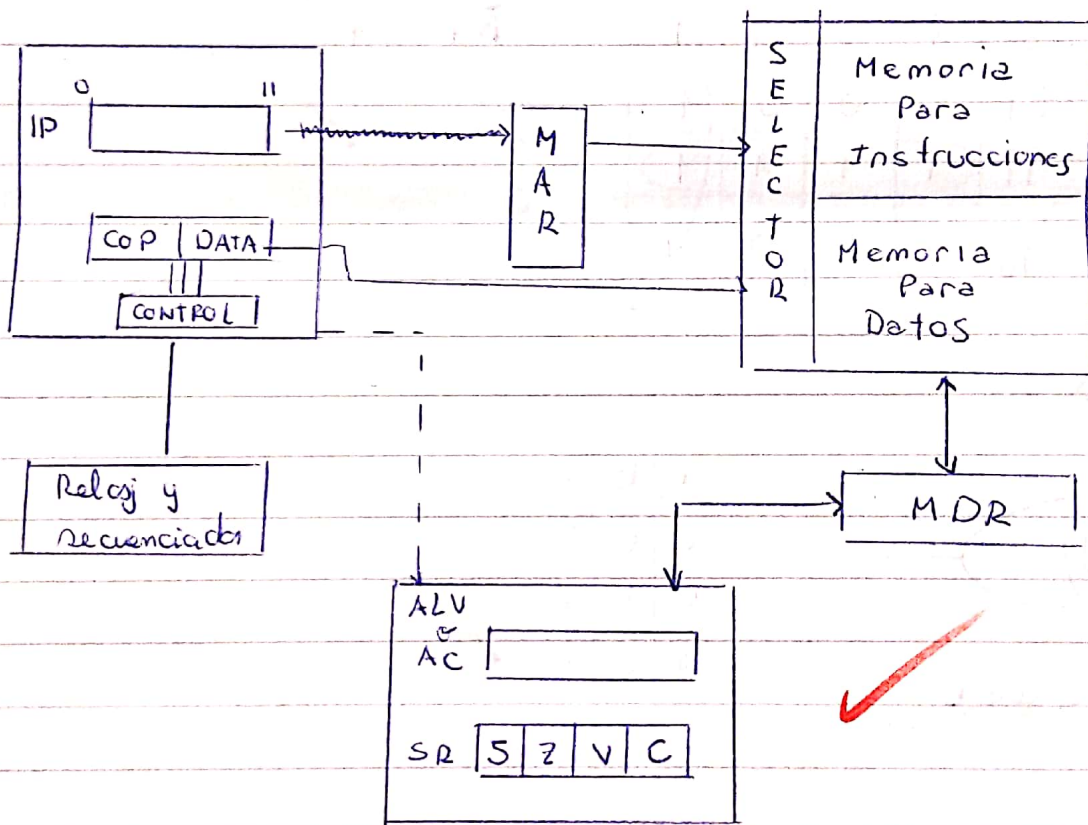 0 11
IP
COP DATA
CONTROL
MAR
SELECTOR
Memoria
Para
Instrucciones
Memoria
Para
Datos
Reloj y
secuenciador
MDR
ALU
AC
SR S Z V C